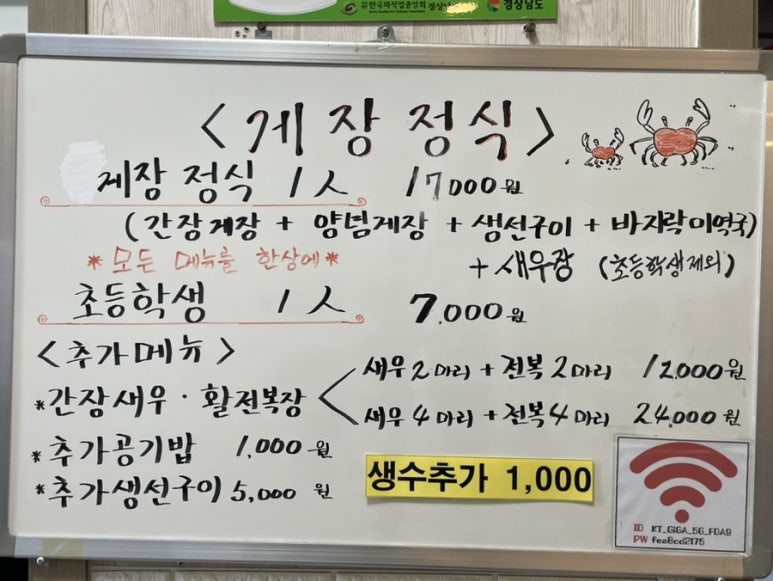 한국외식업중앙회 경상남
경상남도
<게장 정식>
게장 정식 1人 17000원
(간장게장 + 양념게장 + 생선구이 + 바지락미역국)
*모든 메뉴를 한상에*
+ 새우장 (초등학생제외)
초등학생 1人 7,000원
<추가메뉴>
*간장새우·활전복장
새우2마리 + 전복2마리 12,000원
새우4마리 + 전복4마리 24,000원
*추가공기밥 1,000원
*추가생선구이 5,000원
생수추가 1,000
ID KT_GiGA_5G_FDA9
PW fea8cd2175